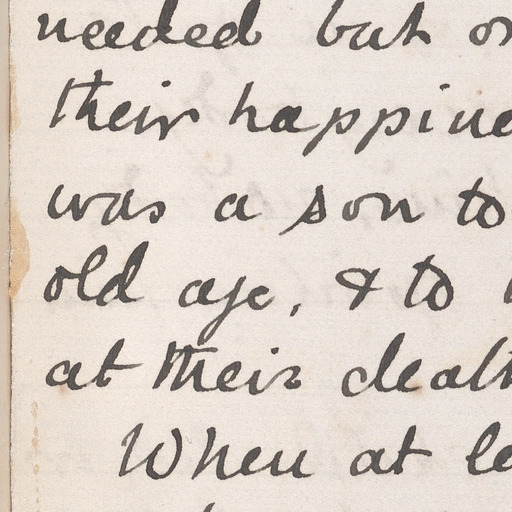 needed but
their happine
was a son to
old age, & to
at their death
When at le